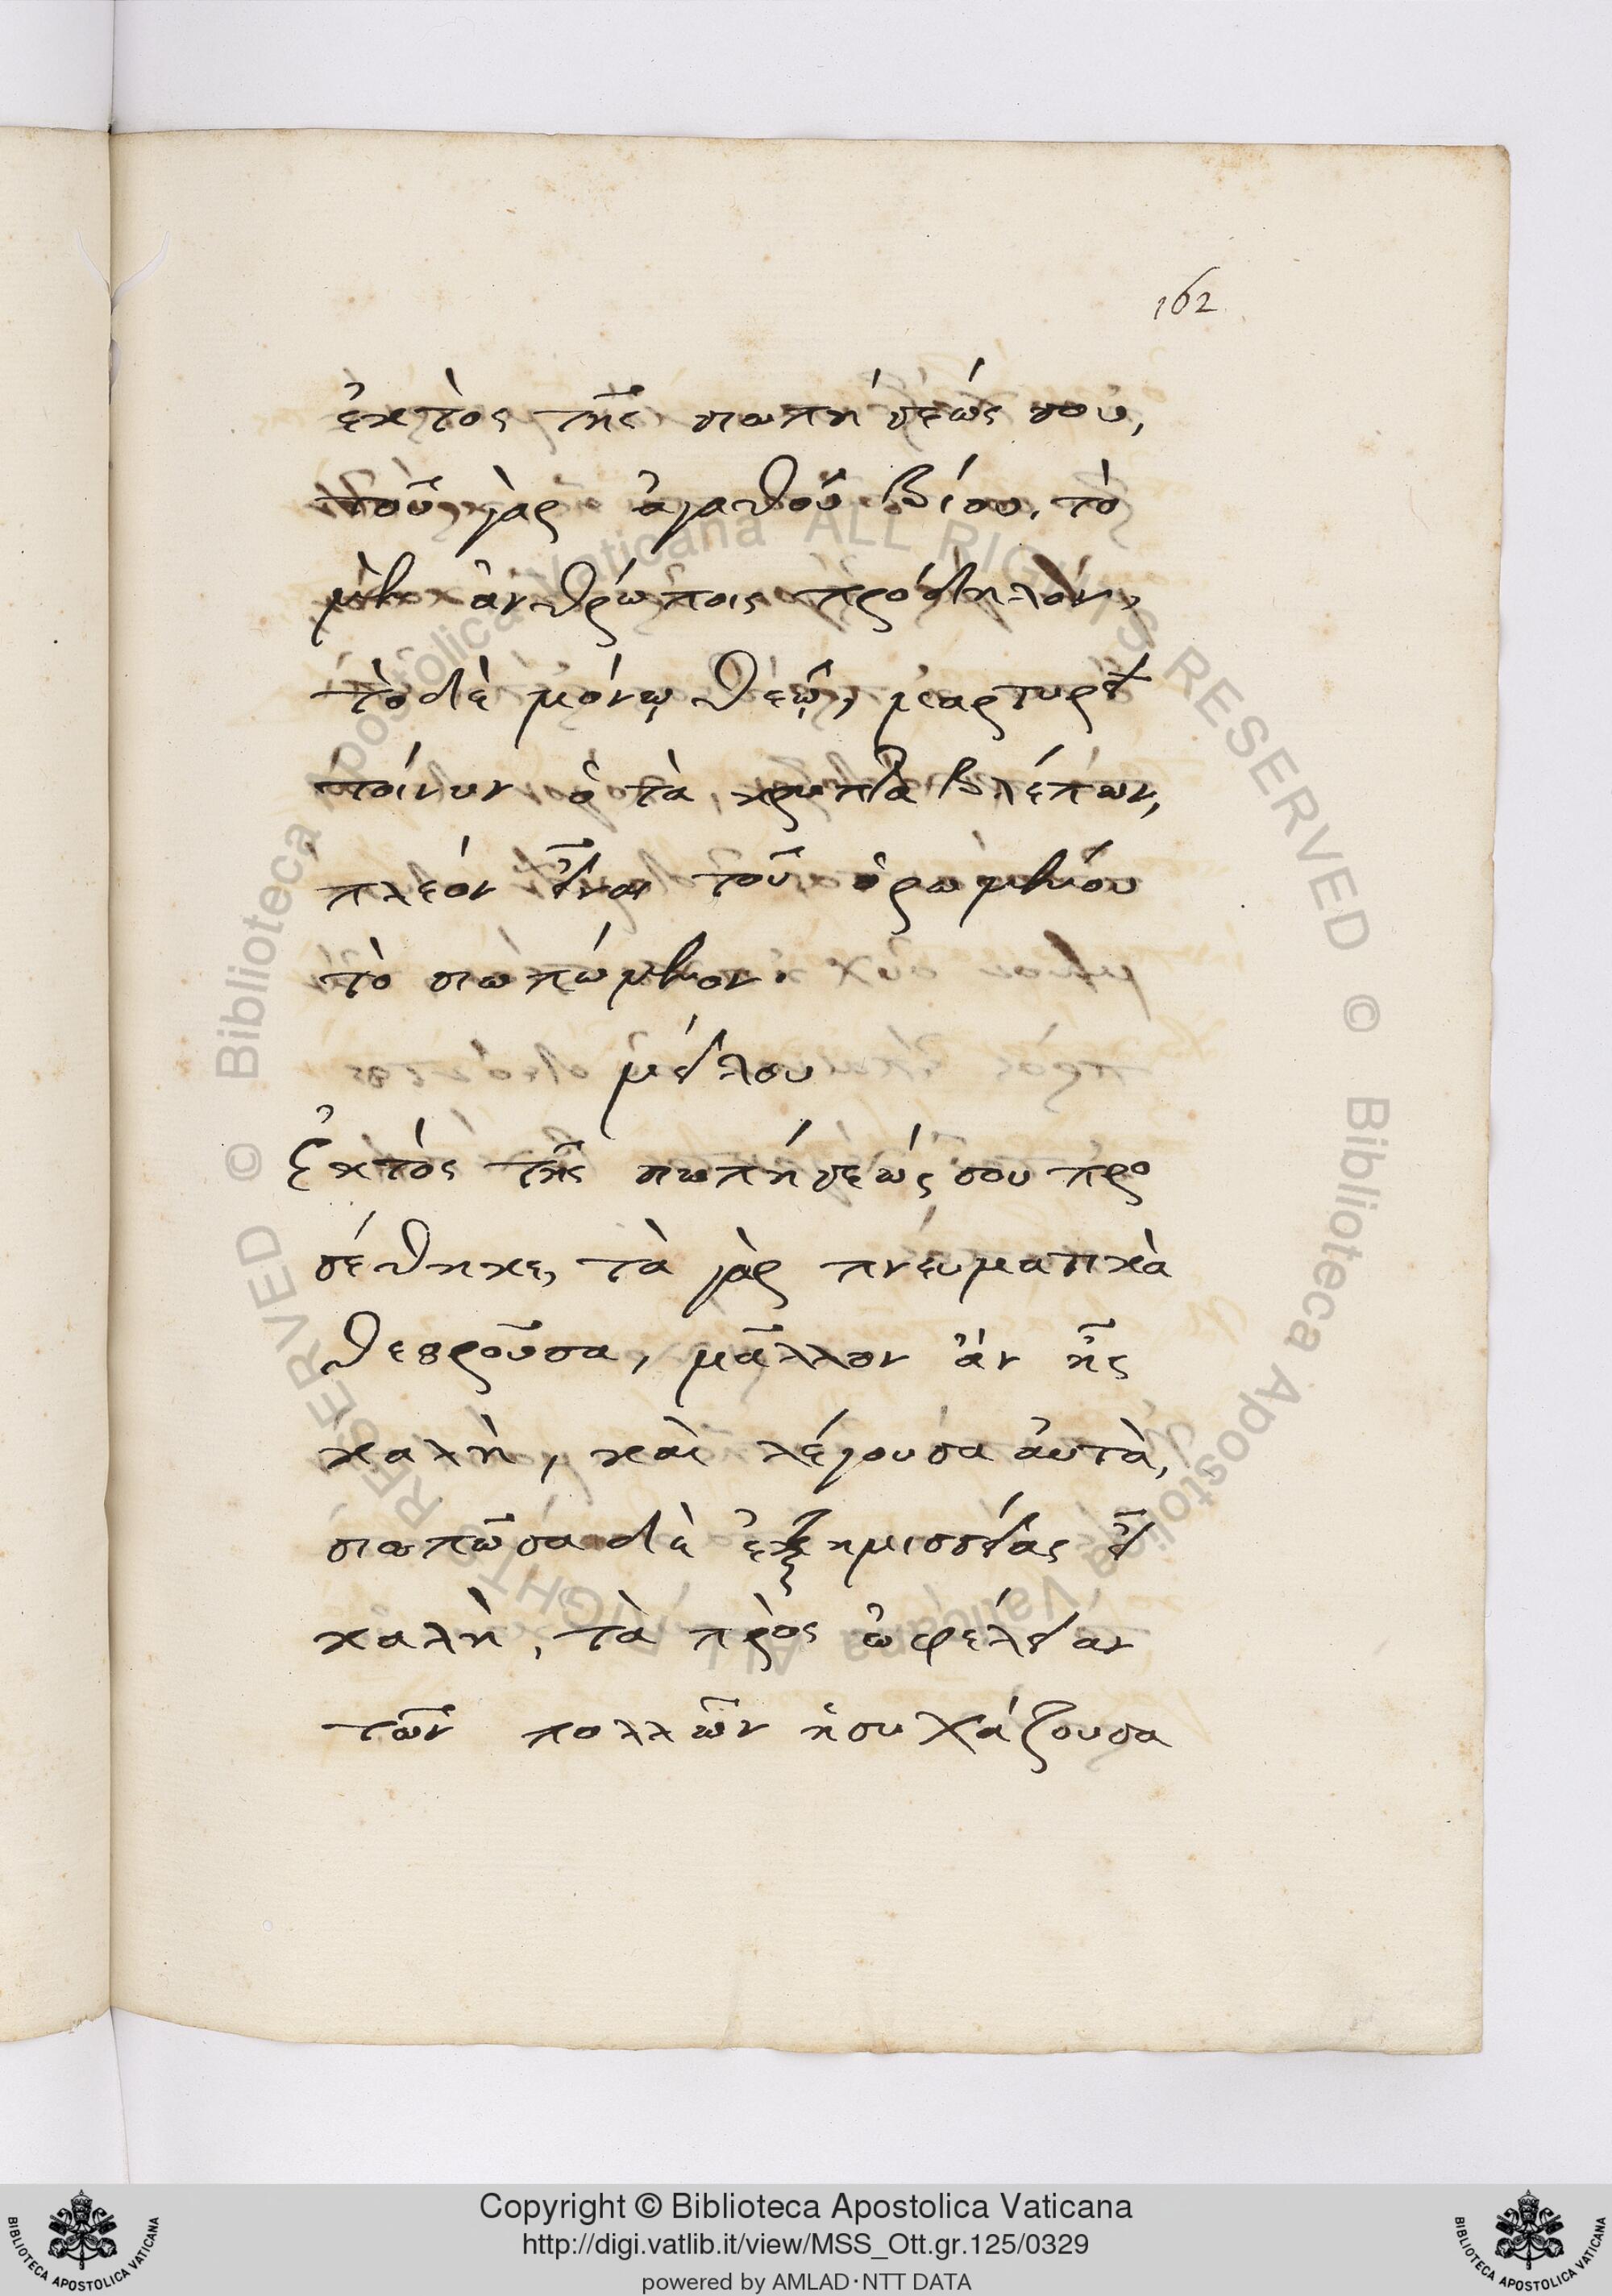 162
ἐκτὸς τῆς σιωπήσεώς σου,
τοῦ γὰρ ἀγαθοῦ βίου, τὸ
μὲν ἀνθρώποις πρόδηλον,
τὸ δὲ μόνῳ θεῷ, μαρτυρεῖ
τοίνυν ὁ τὰ κρυπτὰ βλέπων,
πλέον εἶναι τοῦ ὁρωμένου
τὸ σιωπώμενον.
μείλου
Ἐκτὸς τῆς σιωπήσεώς σου προ
σέθηκε, τὰ γὰρ πνευματικὰ
θεωροῦσα, μᾶλλον ἂν ἦς
καλὴ, καὶ λέγουσα αὐτὰ,
σιωπῶσα δὲ ἐξημισείας εἶ
καλὴ, τὰ πρὸς ὠφέλειαν
τῶν πολλῶν ἡσυχάζουσα
Copyright © Biblioteca Apostolica Vaticana
http://digi.vatlib.it/view/MSS_Ott.gr.125/0329
powered by AMLAD·NTT DATA
BIBLIOTECA APOSTOLICA VATICANA
BIBLIOTECA APOSTOLICA VATICANA
© Biblioteca Apostolica Vaticana ALL RIGHTS RESERVED
© Biblioteca Apostolica Vaticana ALL RIGHTS RESERVED